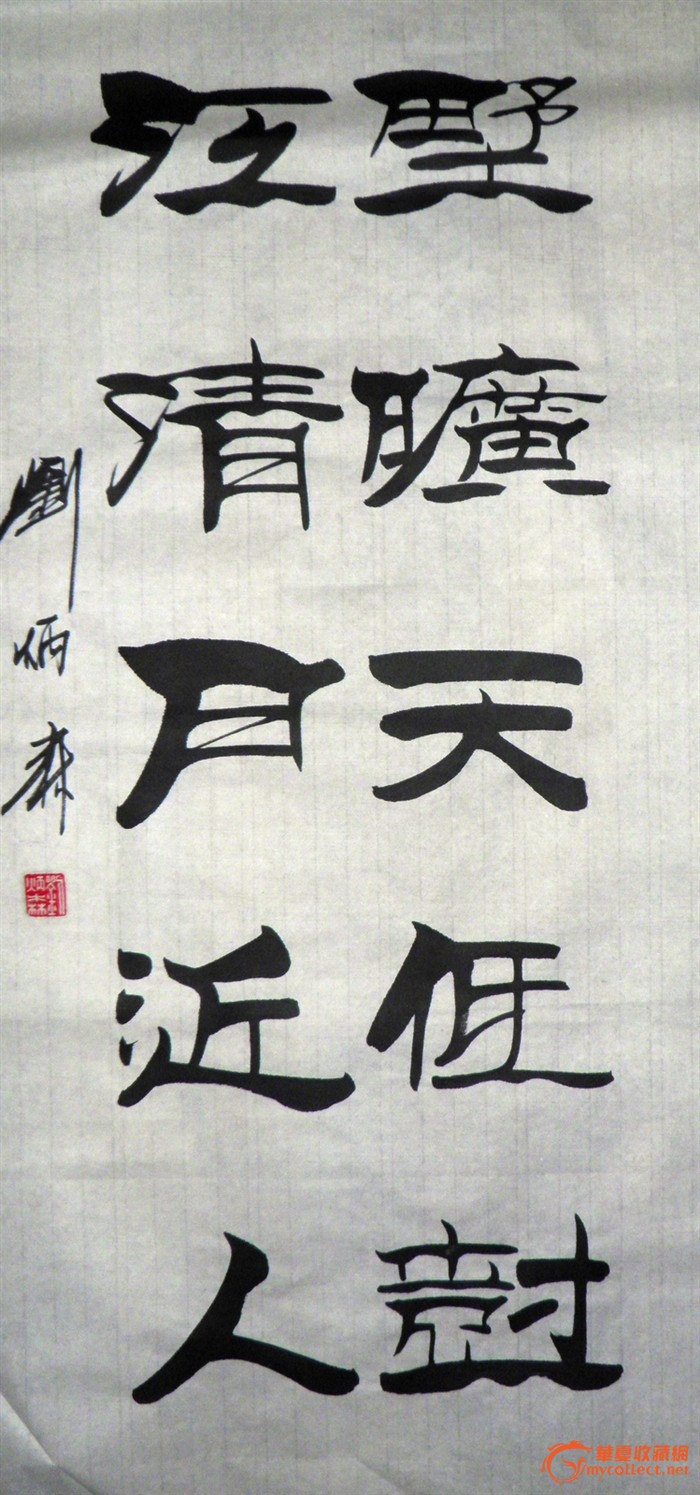 野曠天低樹
江清月近人
劉炳森
劉炳森
華夏收藏網
mycollect.net